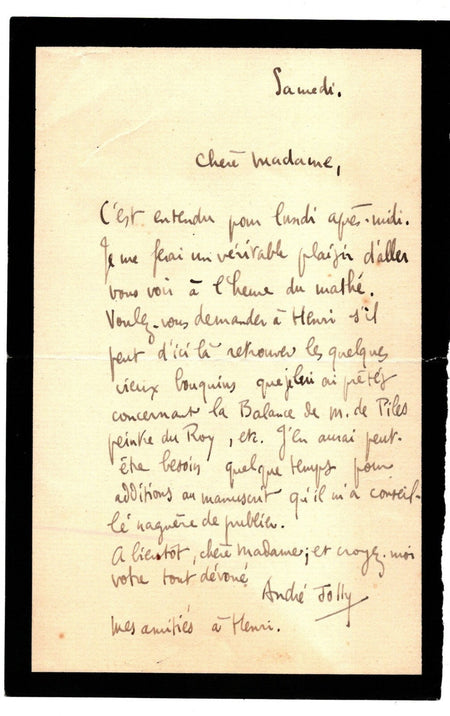 Samedi.
Chère Madame,
C'est entendu pour lundi après-midi.
Je me ferai un véritable plaisir d'aller
vous voir à l'heure du mathé.
Voulez-vous demander à Henri s'il
peut d'ici là retrouver les quelques
vieux bouquins que je lui ai prêtés
concernant la Balance de M. de Piles
peintre du Roy, etc. J'en aurai peut-
être besoin quelque temps pour
additions au manuscrit qu'il m'a conseil-
lé naguère de publier.
A bientôt, chère Madame, et croyez-moi
votre tout dévoué
André Jolly
Mes amitiés à Henri.